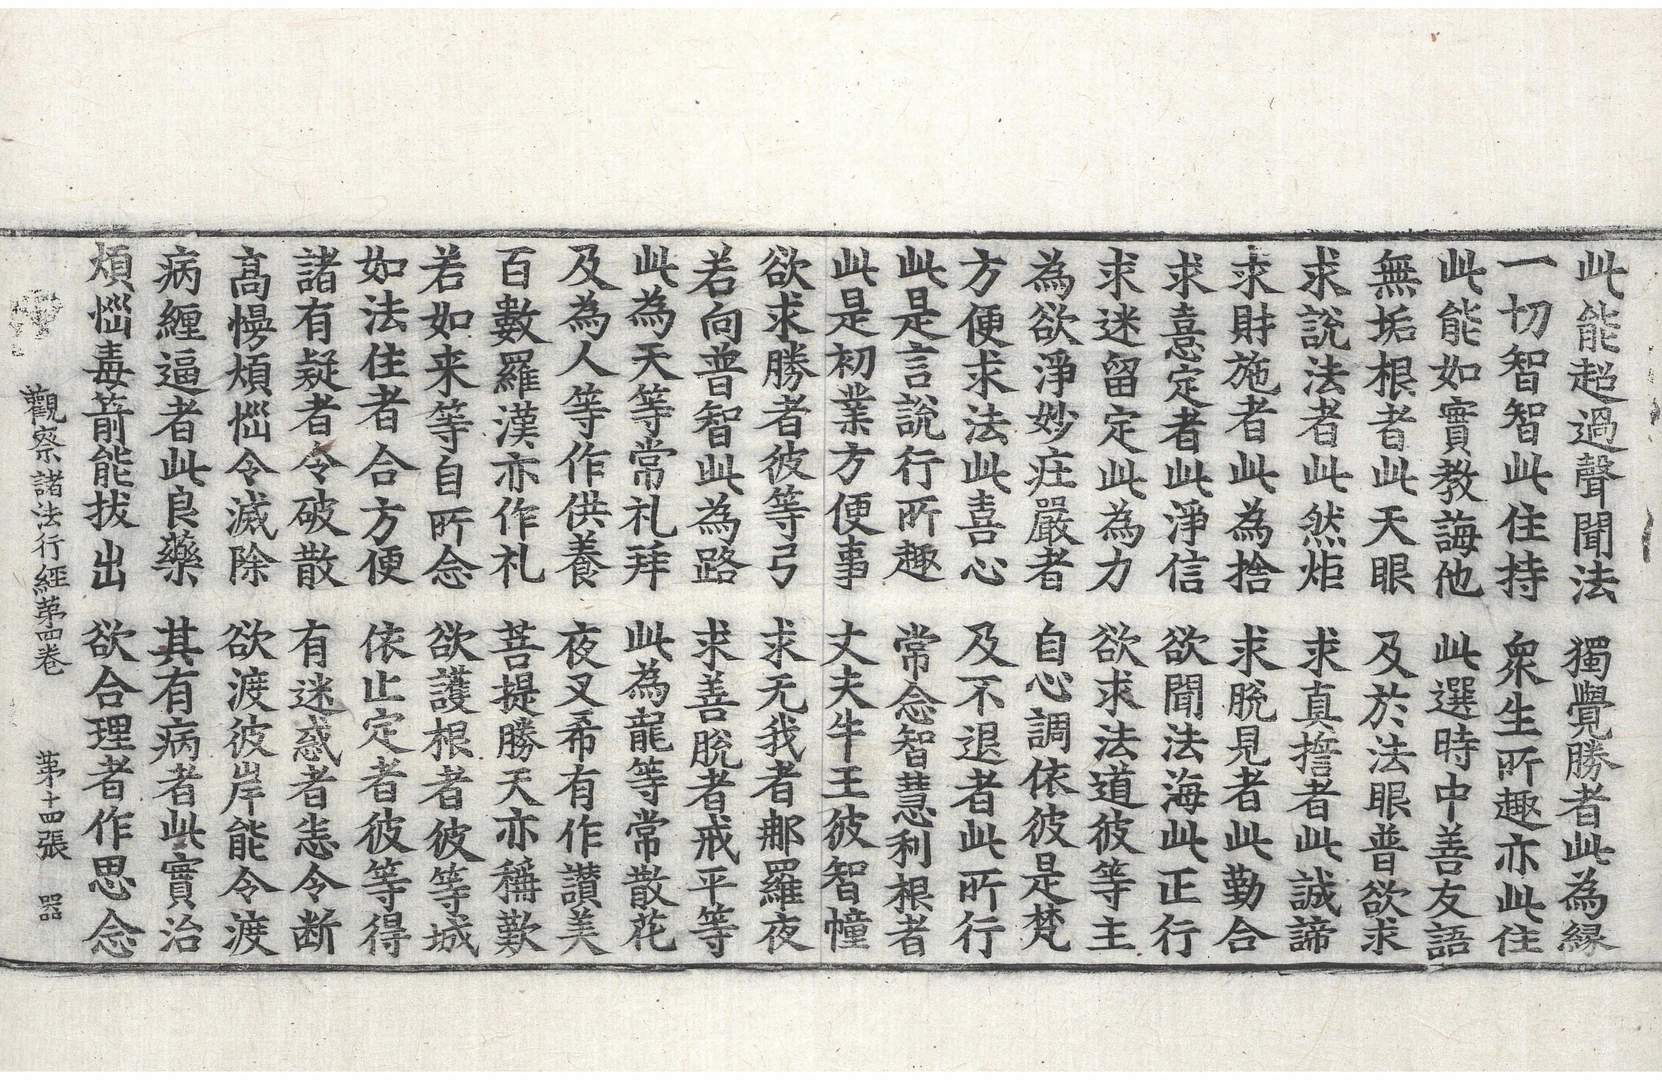 此能超過聲聞法　獨覺勝者此為緣
一切智智此住持　衆生所趣亦此住
此能如實教誨他　此選時中善友語
無垢根者此天眼　及於法眼普欲求
求說法者此然炬　求真撍者此誠諦
求財施者此為捨　求脫見者此勤合
求憙定者此淨信　欲聞法海此正行
求迷留定此為力　欲求法道彼等主
為欲淨妙庄嚴者　自心調依彼是梵
方便求法此喜心　及不退者此所行
此是言說行所趣　常念智慧利根者
此是初業方便事　丈夫牛王彼智幢
欲求勝者彼等弓　求无我者那羅夜
若向普智此為路　求善脫者戒平等
此為天等常礼拜　此為龍等常散花
及為人等作供養　夜叉希有作讃美
百數羅漢亦作礼　菩提勝天亦稱歎
若如来等自所念　欲護根者彼等城
如法住者合方便　依止定者彼等得
諸有疑者令破散　有迷惑者恙令断
高慢煩惱令滅除　欲渡彼岸能令渡
病纏逼者此良藥　其有病者此實治
煩惱毒箭能拔出　欲合理者作思念
觀察諸法行經苐四卷　苐十四張　器